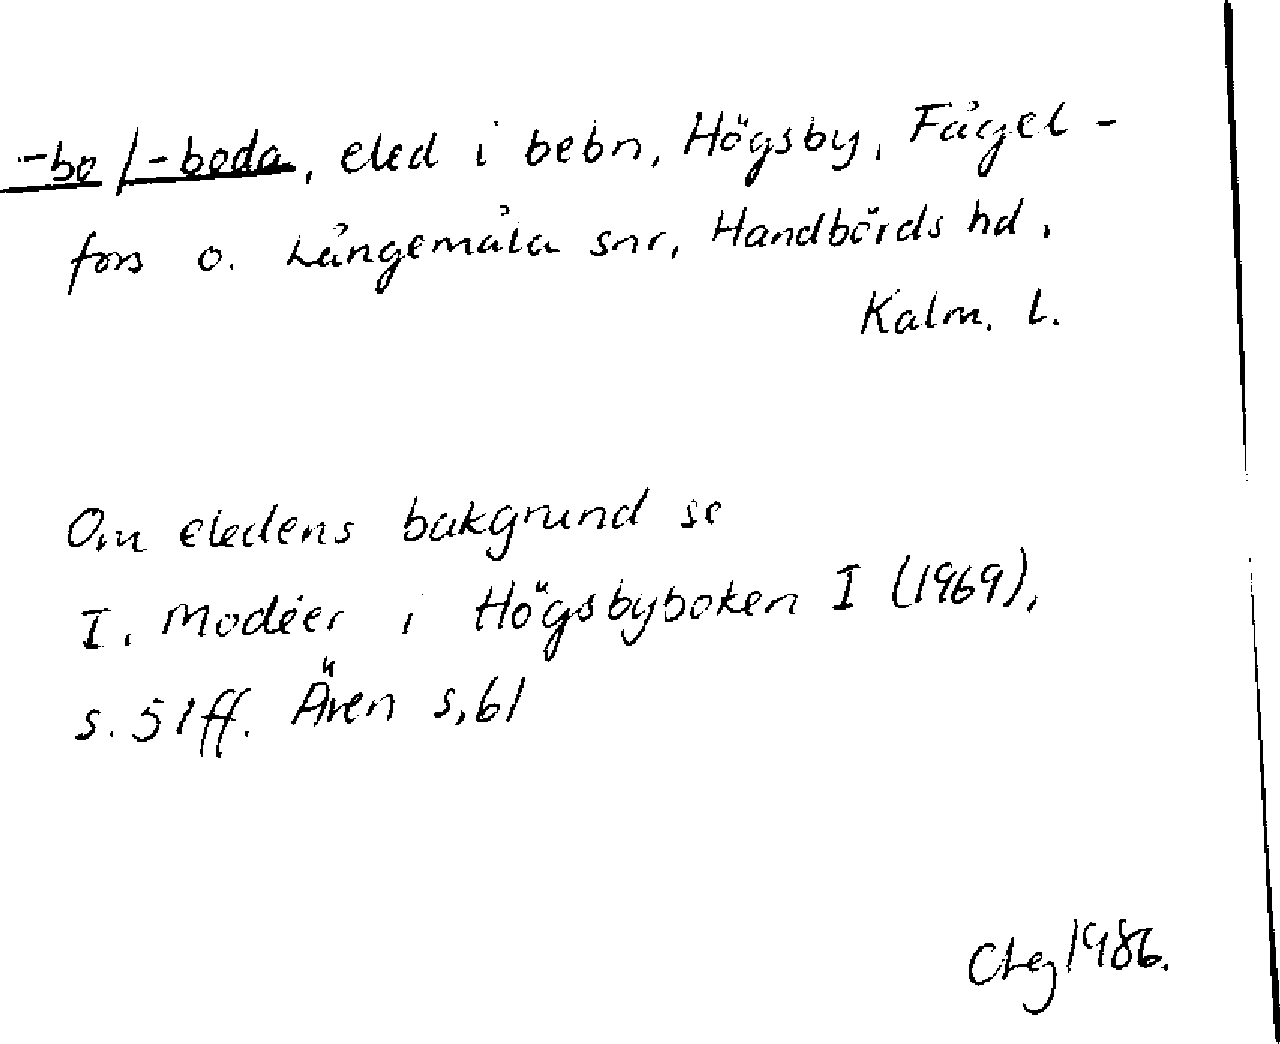 -bo/-boda, eled i bebn, Högsby, Fågel-
fors o. Långemåla snr, Handbörds hd.
Kalm. L.
Om eledens bakgrund se
I. Modéer i Högsbyboken I (1969),
s. 51ff. Även s. 61
1986.